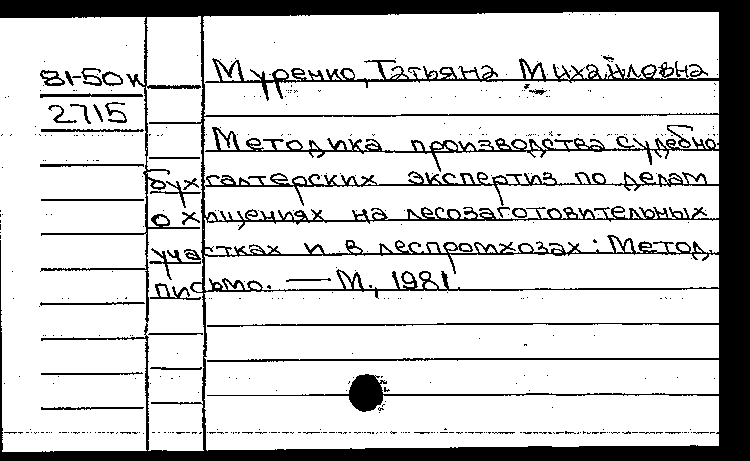 81-50к Муренко, Татьяна Михайловна
2715
Методика производства судебно-
бухгалтерских экспертиз по делам
о хищениях на лесозаготовительных
участках и в леспромхозах: Метод.
письмо. — М., 1981.